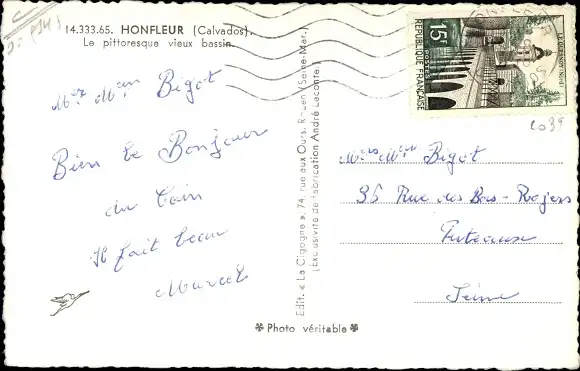 14.333.65. HONFLEUR (Calvados).
Le pittoresque vieux bassin.
Mer Mme Bigot
Bien le Bonjour
du Coin
Il fait beau
Marcel
Edit. « La Cigogne », 74, rue aux Ours, Rouen (Seine-Mar.)
(Exclusivité de fabrication André Leconte.)
Photo véritable
15F
POSTES
REPUBLIQUE FRANÇAISE
LE QUESNOY-NORD
Mers Mme Bigot
36 Rue des Bas-Rogers
Puteaux
Seine